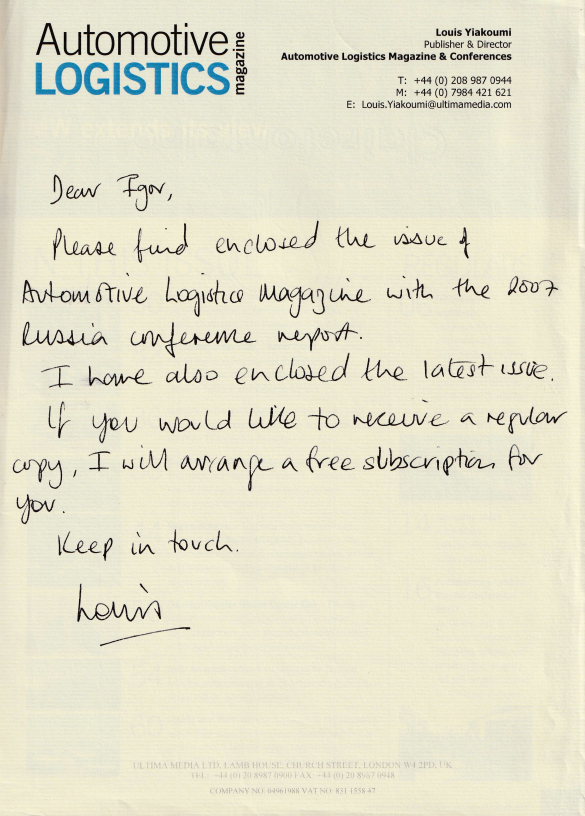 Automotive
LOGISTICS
magazine
Louis Yiakoumi
Publisher & Director
Automotive Logistics Magazine & Conferences
T: +44 (0) 208 987 0944
M: +44 (0) 7984 421 621
E: Louis.Yiakoumi@ultimamedia.com
Dear Igor,
Please find enclosed the issue of
Automotive Logistics Magazine with the 2007
Russia conference report.
I have also enclosed the latest issue.
If you would like to receive a regular
copy, I will arrange a free subscription for
you.
Keep in touch.
Louis
ULTIMA MEDIA LTD. LAMB HOUSE, CHURCH STREET, LONDON W4 2PD, UK
TEL: +44 (0) 20 8987 0900 FAX: +44 (0) 20 8987 0948
COMPANY NO: 04961988 VAT NO: 831 1558 47